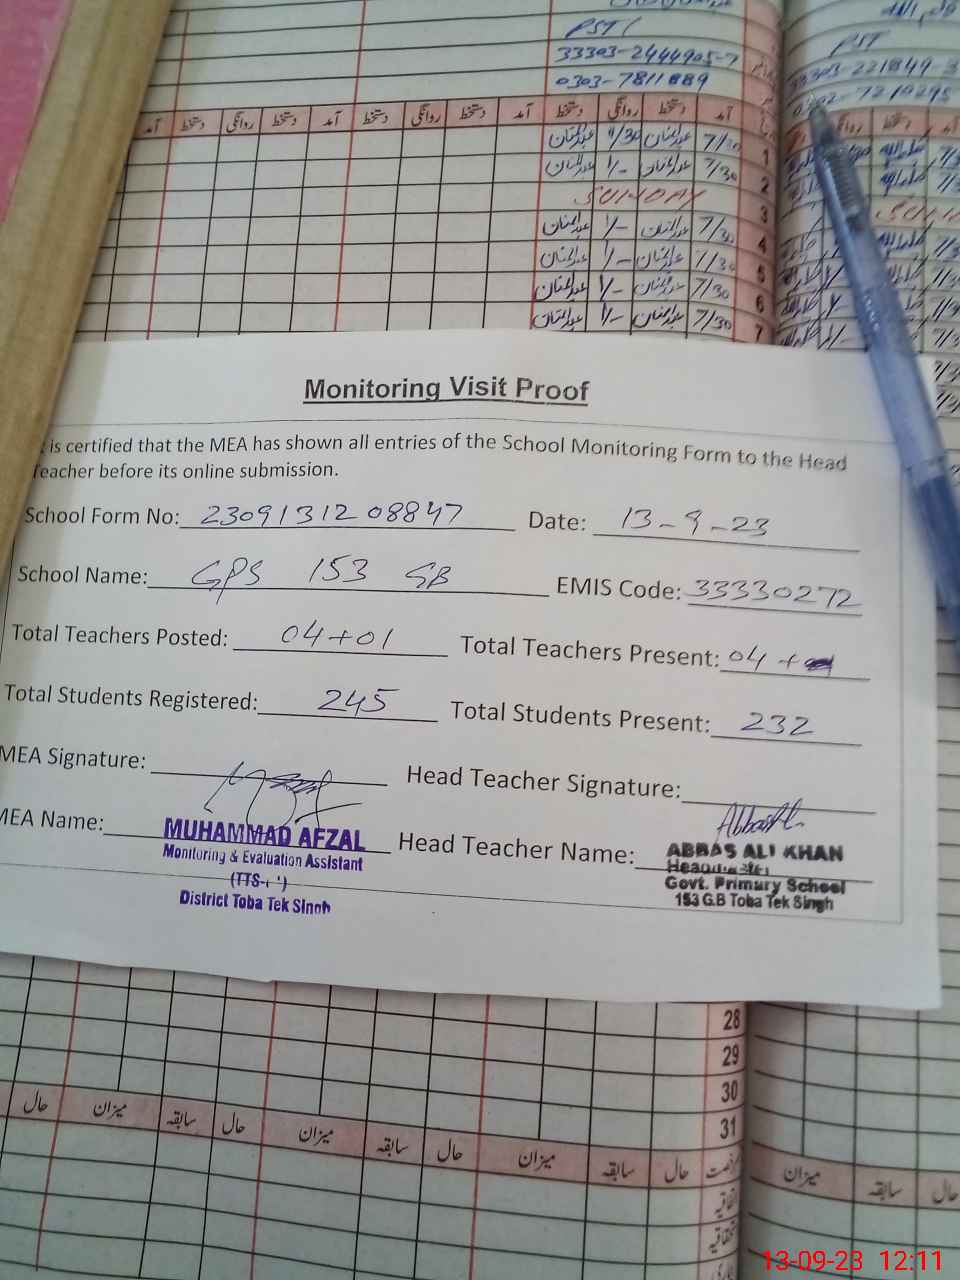 PST
33303-2444905-7
0303-7811889
PST
آمد دستخط روانگی دستخط آمد دستخط روانگی دستخط آمد دستخط روانگی دستخط آمد
1 7/30 عبدالمنان 11/30 عبدالمنان
2 7/30 عبدالمنان 1/- عبدالمنان
3 SUNDAY
4 7/30 عبدالمنان 1/- عبدالمنان
5 7/30 عبدالمنان 1/- عبدالمنان
6 7/30 عبدالمنان 1/- عبدالمنان
7 7/30 عبدالمنان 1/- عبدالمنان
Monitoring Visit Proof
is certified that the MEA has shown all entries of the School Monitoring Form to the Head
Teacher before its online submission.
School Form No: 2309131208847 Date: 13-9-23
School Name: GPS 153 GB EMIS Code: 33330272
Total Teachers Posted: 04+01 Total Teachers Present: 04 +
Total Students Registered: 245 Total Students Present: 232
MEA Signature: Head Teacher Signature:
MEA Name: MUHAMMAD AFZAL Head Teacher Name: ABBAS ALI KHAN
Monitoring & Evaluation Assistant
District Toba Tek Singh
Govt. Primary School
153 G.B Toba Tek Singh
28
29
30
31
حال میزان سابقہ حال میزان سابقہ حال میزان سابقہ حال
میزان سابقہ حال
13-09-23 12:11